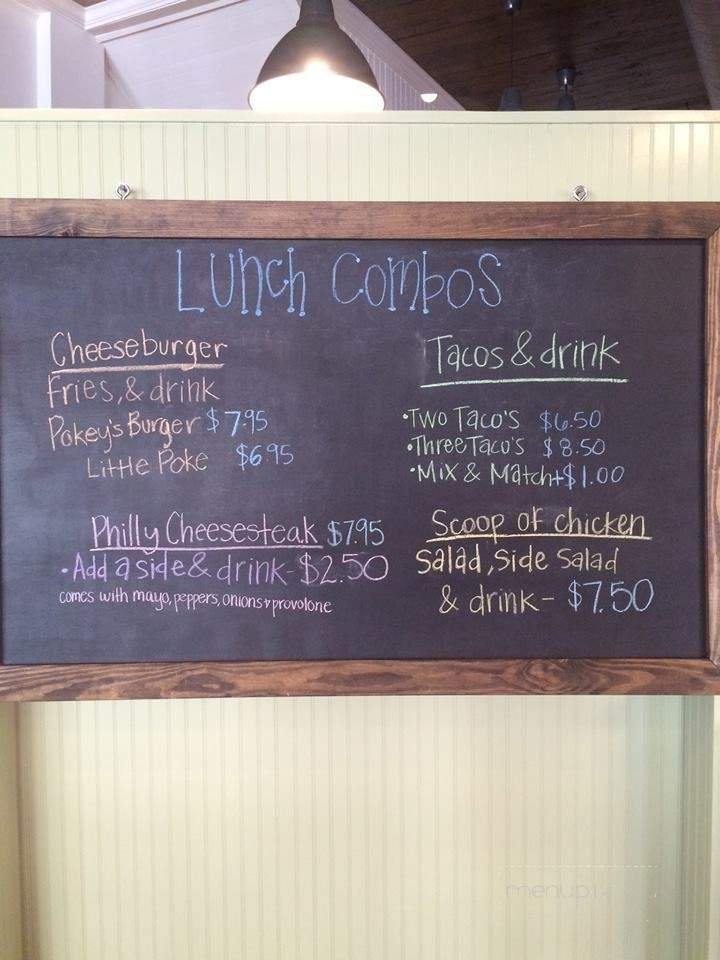 Lunch Combos
Cheeseburger
Fries, & drink
Pokey's Burger $7.95
Little Poke $6.95
Tacos & drink
•Two Taco's $6.50
•Three Taco's $8.50
•Mix & Match+$1.00
Philly Cheesesteak $7.95
•Add a side & drink-$2.50
comes with mayo, peppers, onions & provolone
Scoop of chicken
salad, side salad
& drink- $7.50